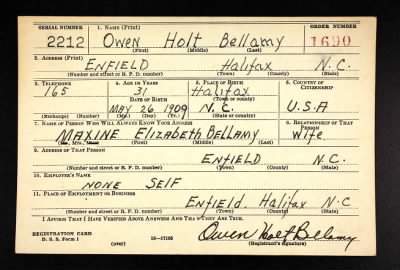 SERIAL NUMBER 1. NAME (Print) ORDER NUMBER
2212 Owen Holt Bellamy 1690
(First) (Middle) (Last)
2. ADDRESS (Print)
ENFIELD Halifax N.C.
(Number and street or R. F. D. number) (Town) (County) (State)
3. TELEPHONE 4. AGE IN YEARS 5. PLACE OF BIRTH 6. COUNTRY OF CITIZENSHIP
165 31 Halifax
DATE OF BIRTH (Town or county)
MAY 26 1909 N.C. U.S.A
(Exchange) (Number) (Mo.) (Day) (Yr.) (State or country)
7. NAME OF PERSON WHO WILL ALWAYS KNOW YOUR ADDRESS 8. RELATIONSHIP OF THAT PERSON
MAXINE Elizabeth BELLAMY Wife
(Mr., Mrs., Miss) (First) (Middle) (Last)
9. ADDRESS OF THAT PERSON
ENFIELD N.C.
(Number and street or R. F. D. number) (Town) (County) (State)
10. EMPLOYER'S NAME
NONE Self
11. PLACE OF EMPLOYMENT OR BUSINESS
Enfield Halifax N.C
(Number and street or R. F. D. number) (Town) (County) (State)
I AFFIRM THAT I HAVE VERIFIED ABOVE ANSWERS AND THAT THEY ARE TRUE.
REGISTRATION CARD Owen Holt Bellamy
D. S. S. Form 1 (over) 16—17105 (Registrant's signature)